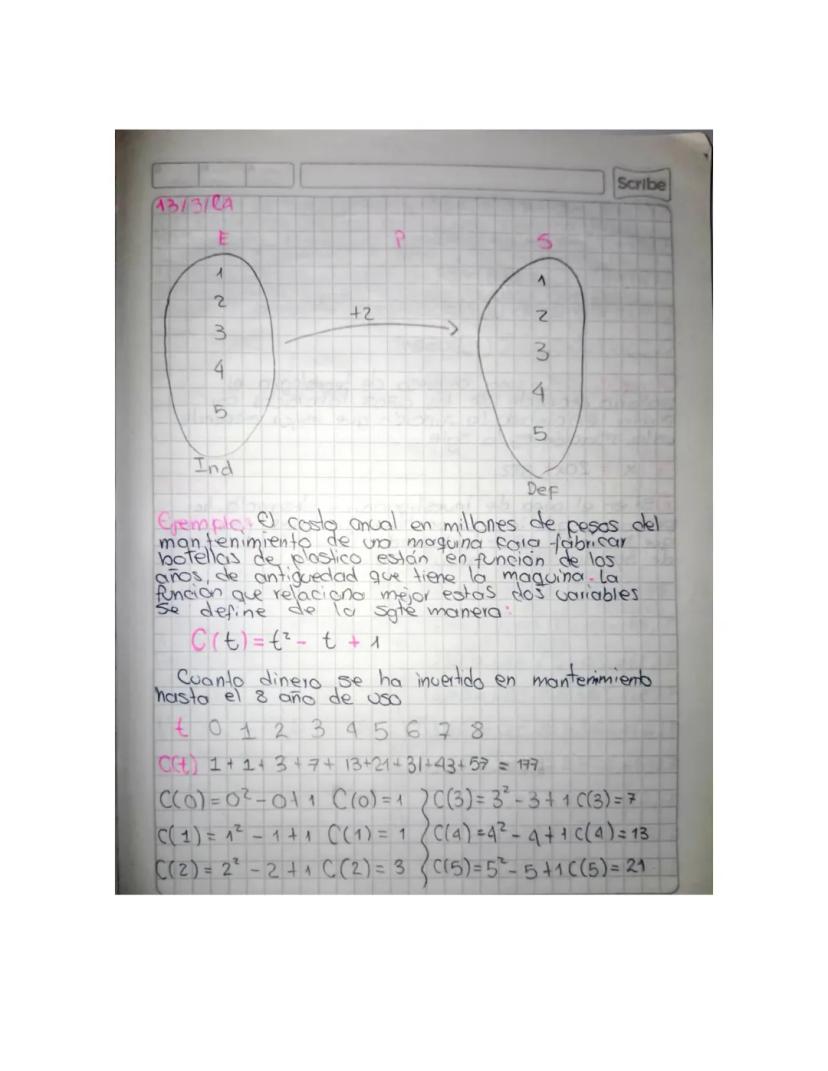 Scribe
13/3/CA
E P S
1
2
3
4
5
+2
1
2
3
4
5
Ind
Def
Ejemplo: El costo anual en millones de pesos del
mantenimiento de una maquina para fabricar
botellas de plastico están en función de los
años, de antiguedad que tiene la maquina. La
función que relaciona mejor estas dos variables
se define de la sgte manera:
C(t) = t² - t + 1
Cuanto dinero se ha invertido en mantenimiento
hasta el 8 año de uso
t 0 1 2 3 4 5 6 7 8
C(t) 1+1+3+7+13+21+31+43+57 = 177
C(0)=0²-0+1 C(0)=1 C(3)=3²-3+1 C(3)=7
C(1)=1²-1+1 C(1)=1 C(4)=4²-4+1 C(4)=13
C(2)=2²-2+1 C(2)=3 C(5)=5²-5+1 C(5)=21